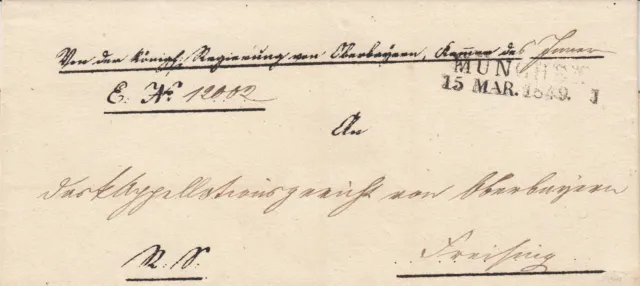 Von der Königl: Regierung von Oberbayern, Kammer des Innern
MÜNCHEN
15 MAR. 1849. 1
E. No. 12002
An
das k Appellationsgericht von Oberbayern
R. S.
Freising